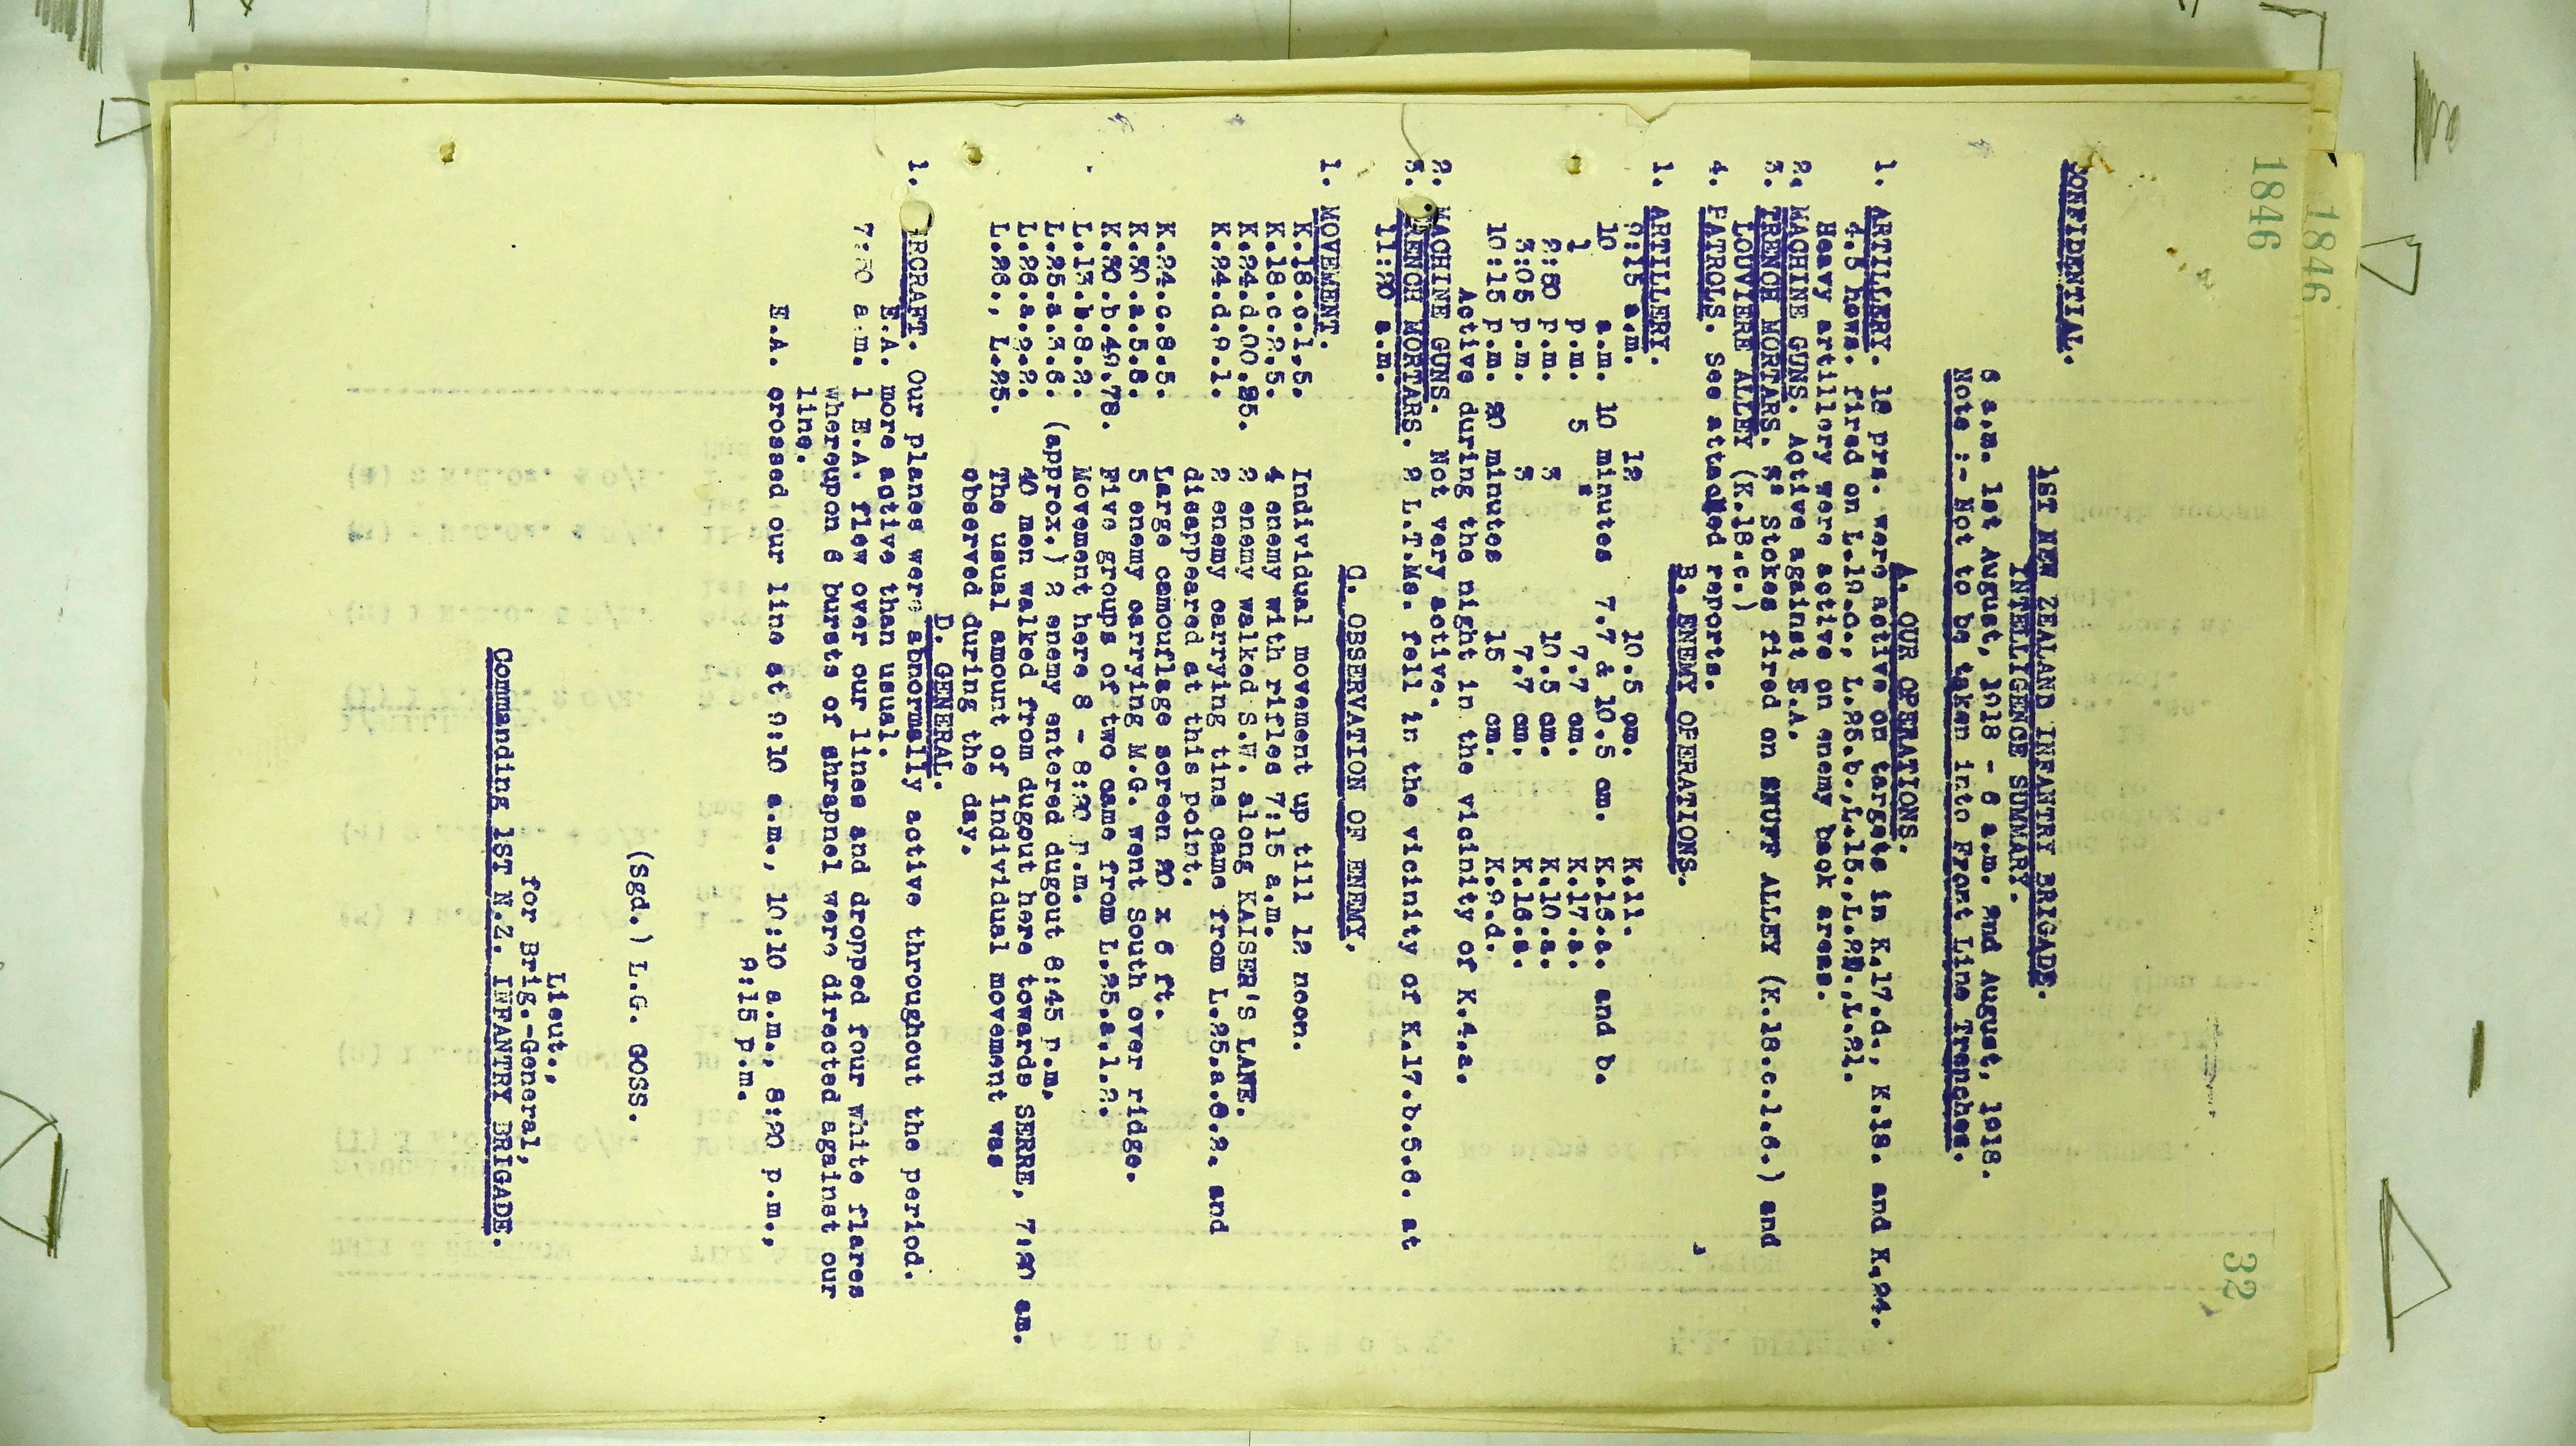 1846
1846
32
CONFIDENTIAL.
1ST NEW ZEALAND INFANTRY BRIGADE.
INTELLIGENCE SUMMARY.
6 a.m. 1st August, 1918 - 6 a.m. 2nd August, 1918.
Note :- Not to be taken into Front Line Trenches.
A. OUR OPERATIONS.
1. ARTILLERY. 18 prs. were active on targets in K.17.d., K.18. and K.24.
4.5 hows. fired on L.19.c., L.25.b., L.15., L.20., L.21.
Heavy artillery were active on enemy back areas.
2. MACHINE GUNS. Active against E.A.
3. TRENCH MORTARS. 3" Stokes fired on SNUFF ALLEY (K.18.c.1.6.) and
LOUVIERE ALLEY (K.18.c.)
4. PATROLS. See attached reports.
B. ENEMY OPERATIONS.
1. ARTILLERY.
9:15 a.m. 12 10.5 cm. K.11.
10 a.m. 10 minutes 7.7 & 10.5 cm. K.15.a. and b.
1 p.m. 5 " 7.7 cm. K.17.a.
2:30 p.m. 3 10.5 cm. K.10.a.
3:05 p.m. 3 7.7 cm. K.16.a.
10:15 p.m. 20 minutes 15 cm. K.9.d.
Active during the night in the vicinity of K.4.a.
2. MACHINE GUNS. Not very active.
3. TRENCH MORTARS. 2 L.T.Ms. fell in the vicinity of K.17.b.5.6. at
11:20 a.m.
C. OBSERVATION OF ENEMY.
1. MOVEMENT.
K.18.c.1.5. Individual movement up till 12 noon.
K.18.c.2.5. 4 enemy with rifles 7:15 a.m.
K.24.d.00.85. 2 enemy walked S.W. along KAISER'S LANE.
K.24.d.9.1. 2 enemy carrying tins came from L.25.a.6.2. and
disappeared at this point.
K.24.c.8.5. Large camouflage screen 20 x 6 ft.
K.30.a.5.8. 5 enemy carrying M.G. went South over ridge.
K.30.b.40.78. Five groups of two came from L.25.a.1.2.
L.13.b.8.2. Movement here 8 - 8:20 p.m.
L.25.a.3.6. (approx.) 2 enemy entered dugout 8:45 p.m.
L.26.a.2.2. 40 men walked from dugout here towards SERRE, 7:20 am.
L.26., L.25. The usual amount of individual movement was
observed during the day.
D. GENERAL.
1. AIRCRAFT. Our planes were abnormally active throughout the period.
E.A. more active than usual.
7:50 a.m. 1 E.A. flew over our lines and dropped four white flares
whereupon 6 bursts of shrapnel were directed against our
line.
E.A. crossed our line at 9:10 a.m., 10:10 a.m., 8:20 p.m.,
9:15 p.m.
(Sgd.) L.G. GOSS.
Lieut.,
for Brig.-General,
Commanding 1ST N.Z. INFANTRY BRIGADE.